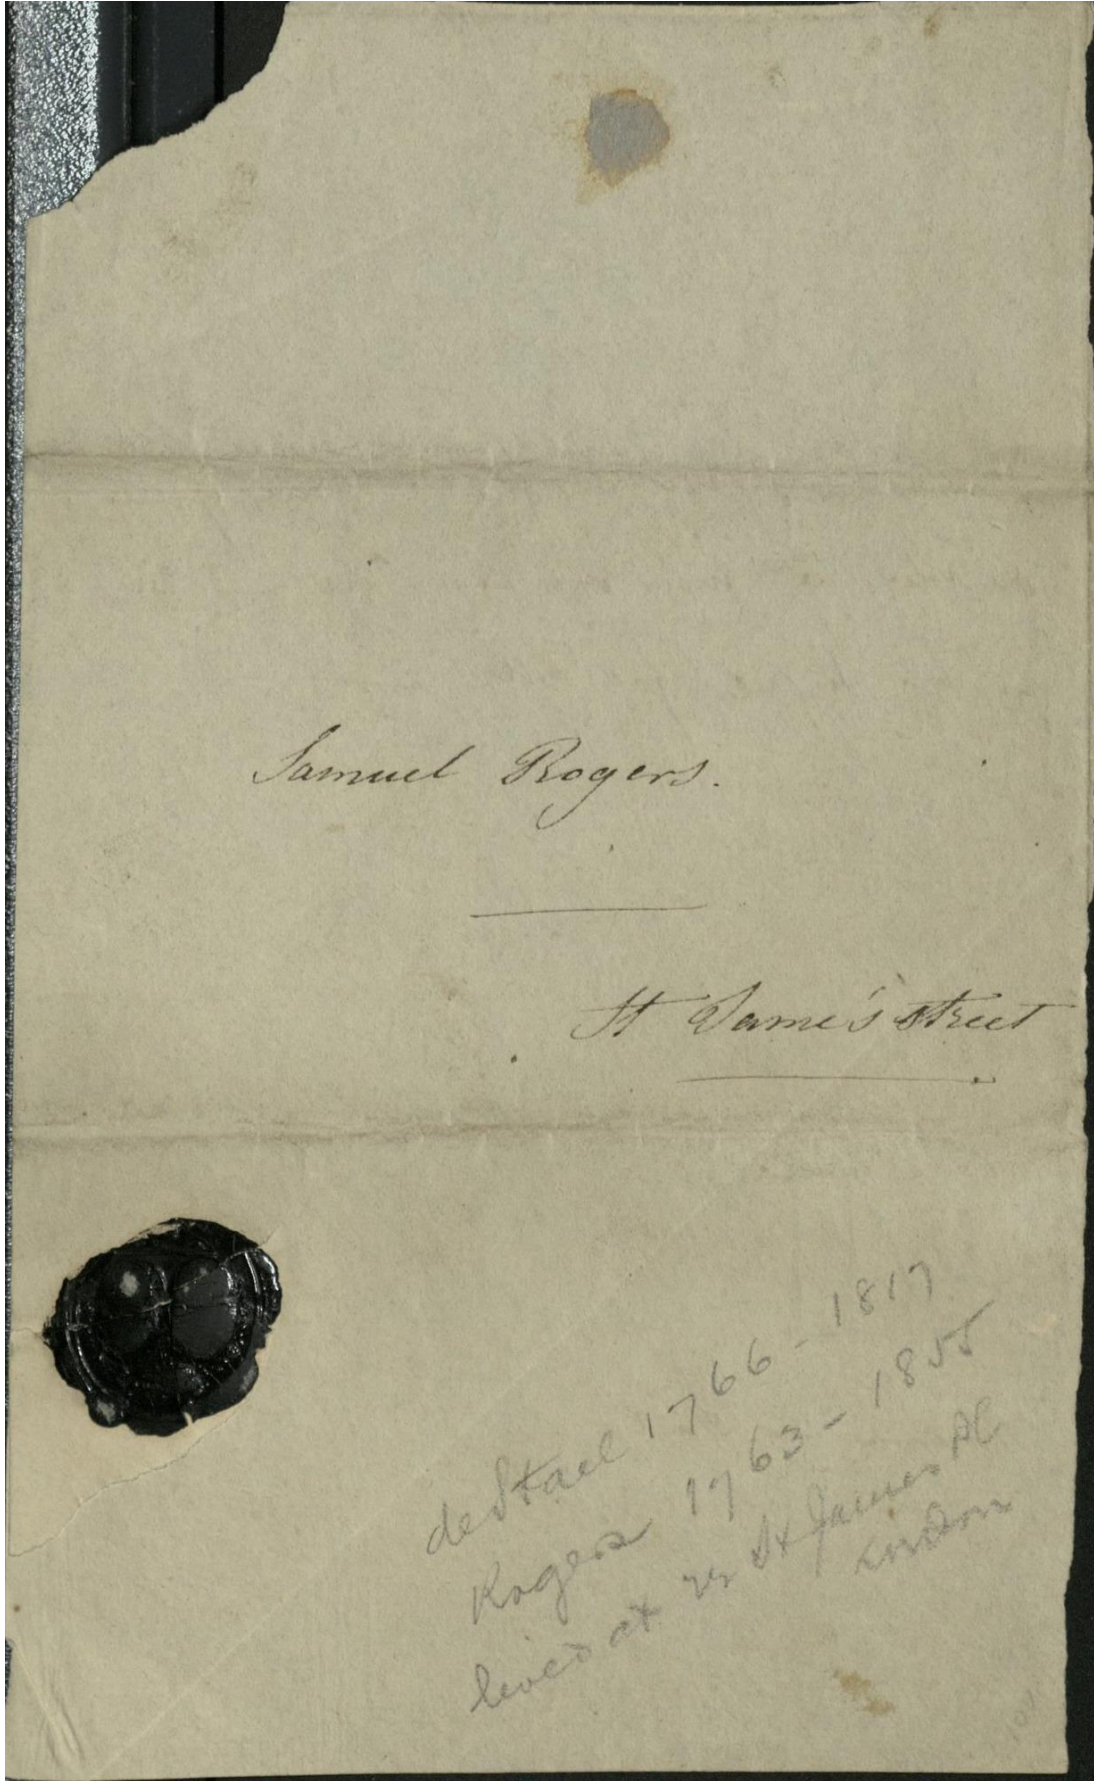 Samuel Rogers.
St Jame's street
de Stael 1766 - 1817
Rogers 1763 - 1855
lived at 22 St James Pl
London